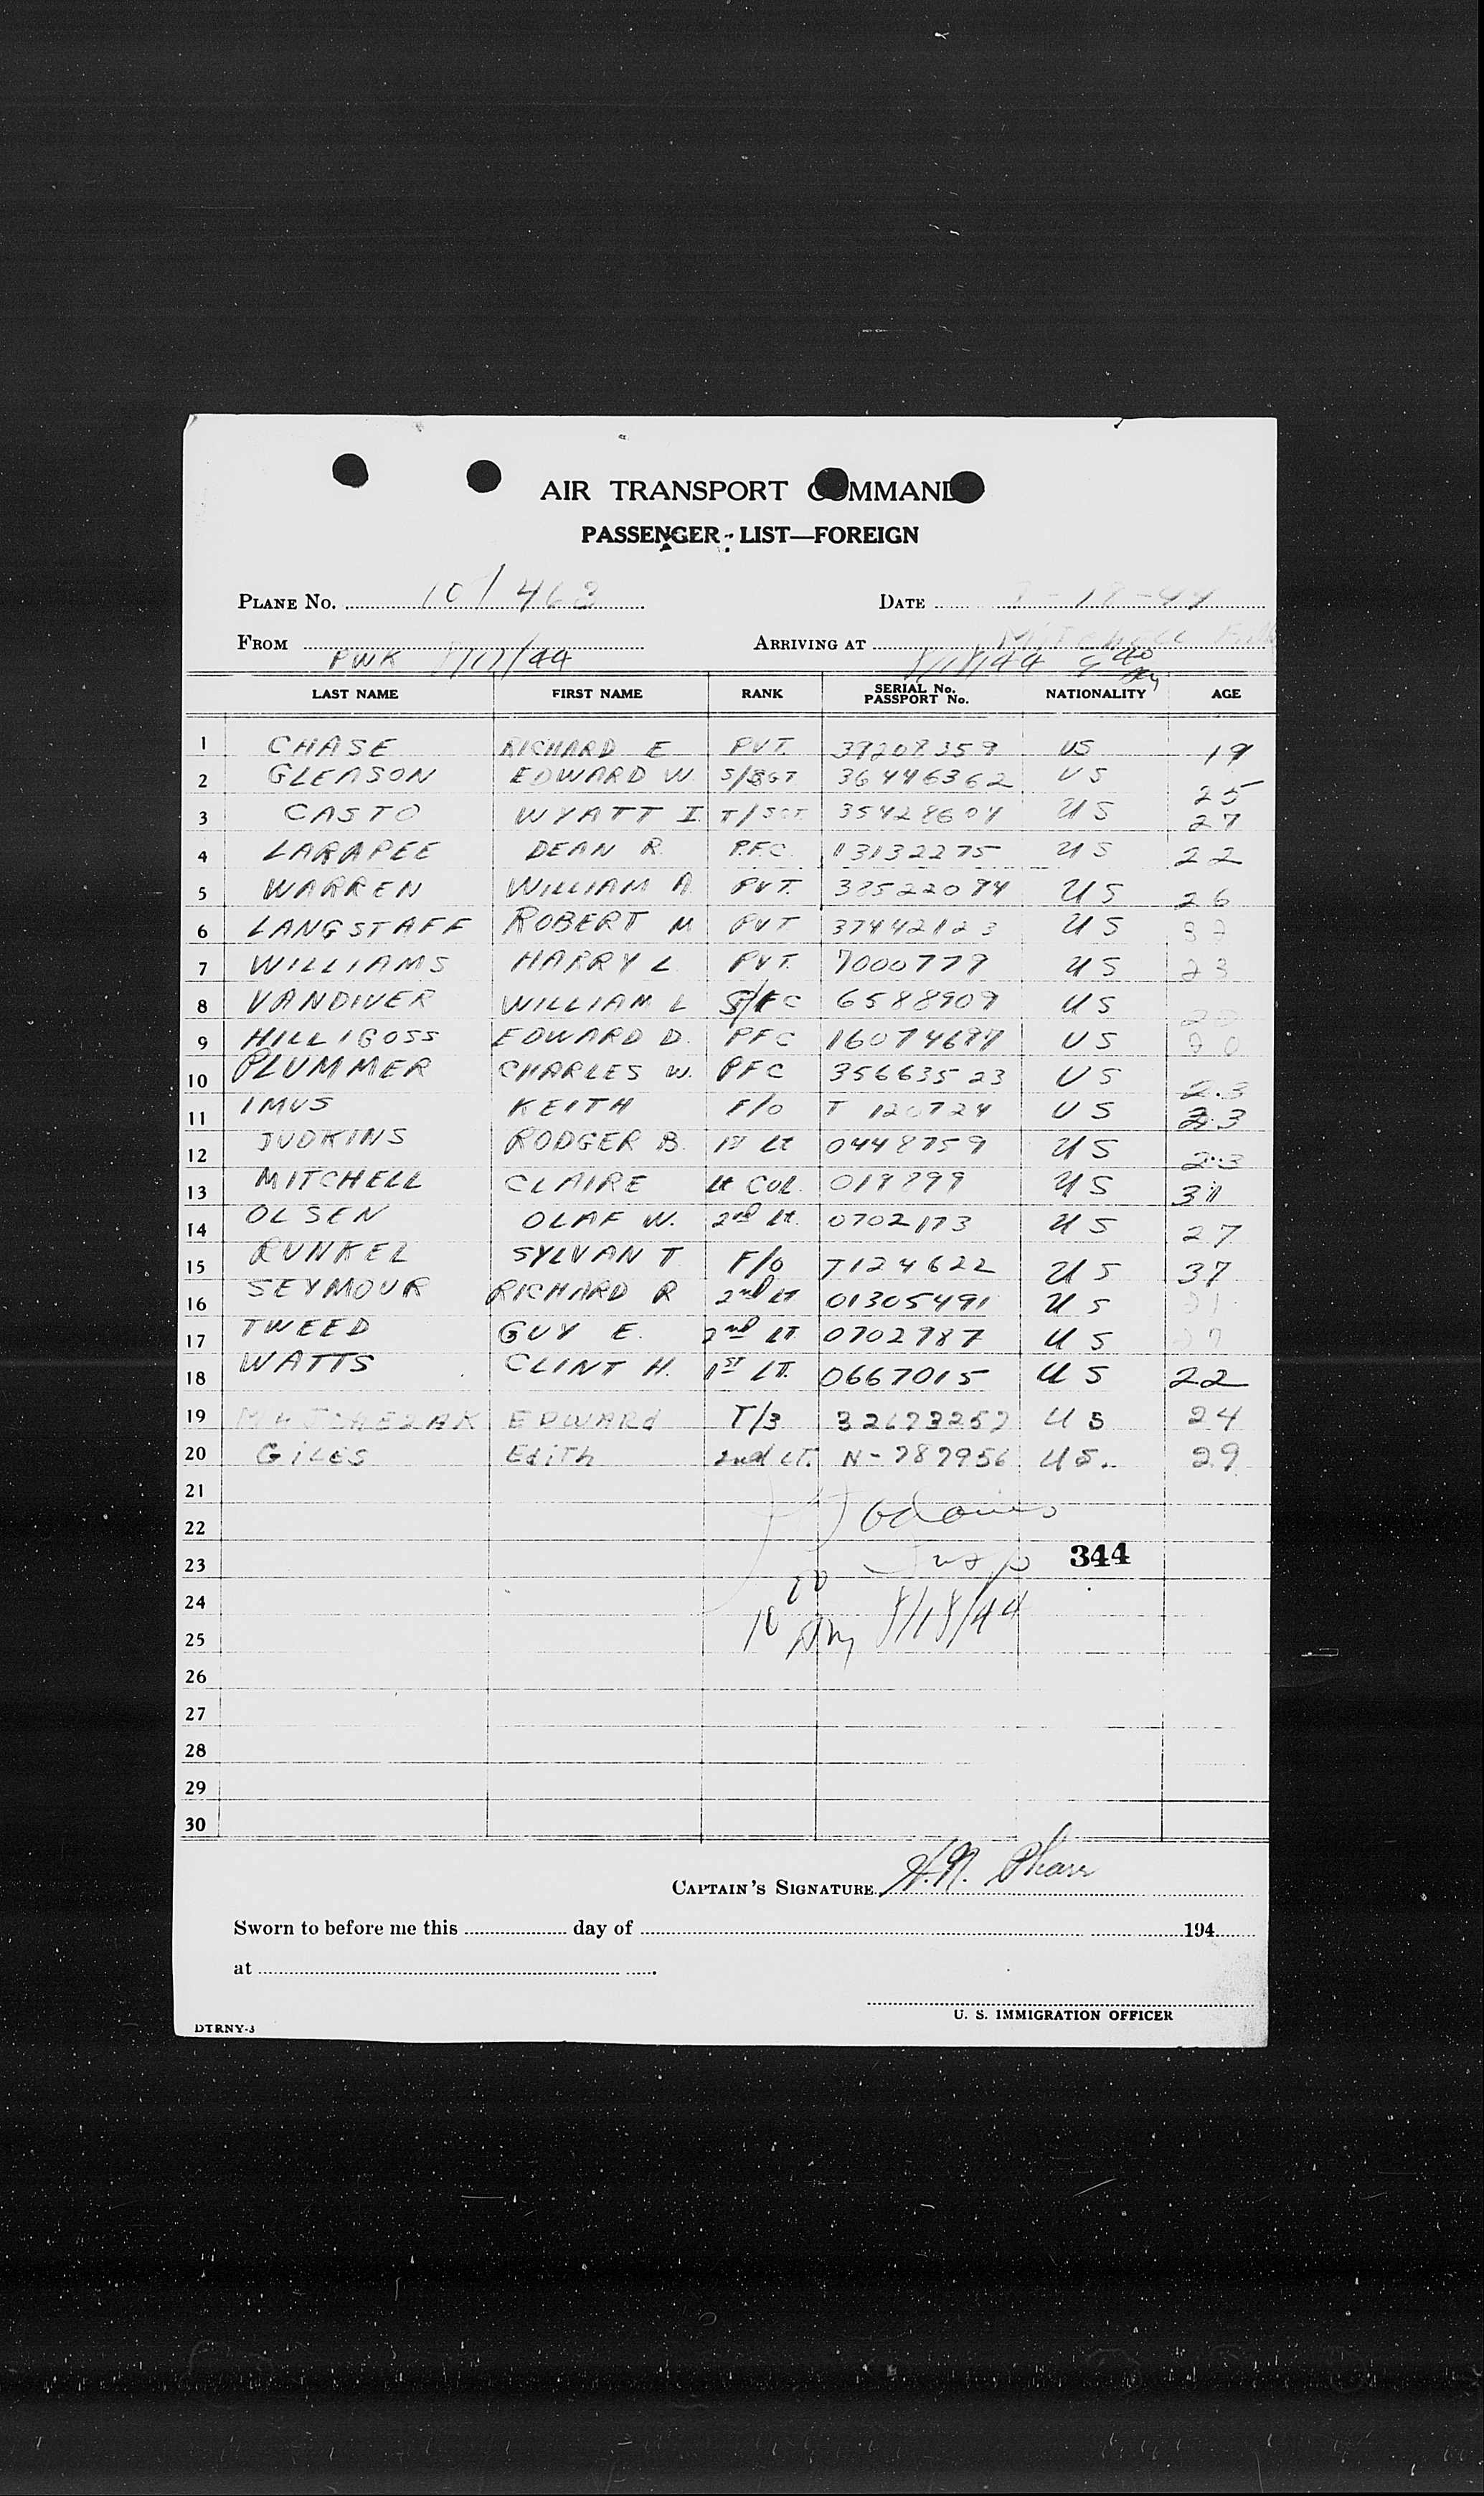 AIR TRANSPORT COMMAND
PASSENGER LIST—FOREIGN
PLANE No. 107463 DATE 8-18-44
FROM PWK 8/17/44 ARRIVING AT Mitchell 8/18/44 9 40
LAST NAME FIRST NAME RANK SERIAL No. PASSPORT No. NATIONALITY AGE
1 CHASE RICHARD E PVT. 39208359 US 19
2 GLEASON EDWARD W. S/SGT 36446362 US 25
3 CASTO WYATT I. T/SGT. 35428604 US 27
4 LARAPEE DEAN R. P.F.C. 13132275 US 22
5 WARREN WILLIAM A. PVT. 38522094 US 26
6 LANGSTAFF ROBERT M PVT 37442123 US
7 WILLIAMS HARRY L PVT. 7000779 US 23
8 VANDIVER WILLIAM L 6588909 US
9 HILLIGOSS EDWARD D. PFC 16074697 US
10 PLUMMER CHARLES W. PFC 35663523 US 23
11 IMUS KEITH F/O T 120724 US 23
12 JUDKINS RODGER B. 1st Lt 0448759 US 23
13 MITCHELL CLAIRE Lt COL. 019899 US 31
14 OLSEN OLAF W. 2nd Lt. 0702173 US 27
15 RUNKEL SYLVAN T F/O T124622 US 37
16 SEYMOUR RICHARD R 2nd Lt 01305491 US 21
17 TWEED GUY E. 2nd LT. 0702987 US 27
18 WATTS CLINT H. 1ST LT. 0667015 US 22
19 EDWARd T/3 32673257 US 24
20 GiLES EdiTh 2nd LT. N-787956 US. 29
21
22
23 Insp 344
24
25 10 20 AM 8/18/44
26
27
28
29
30
CAPTAIN'S SIGNATURE H.N. Pharr
Sworn to before me this day of 194
at
U. S. IMMIGRATION OFFICER
DTRNY-3